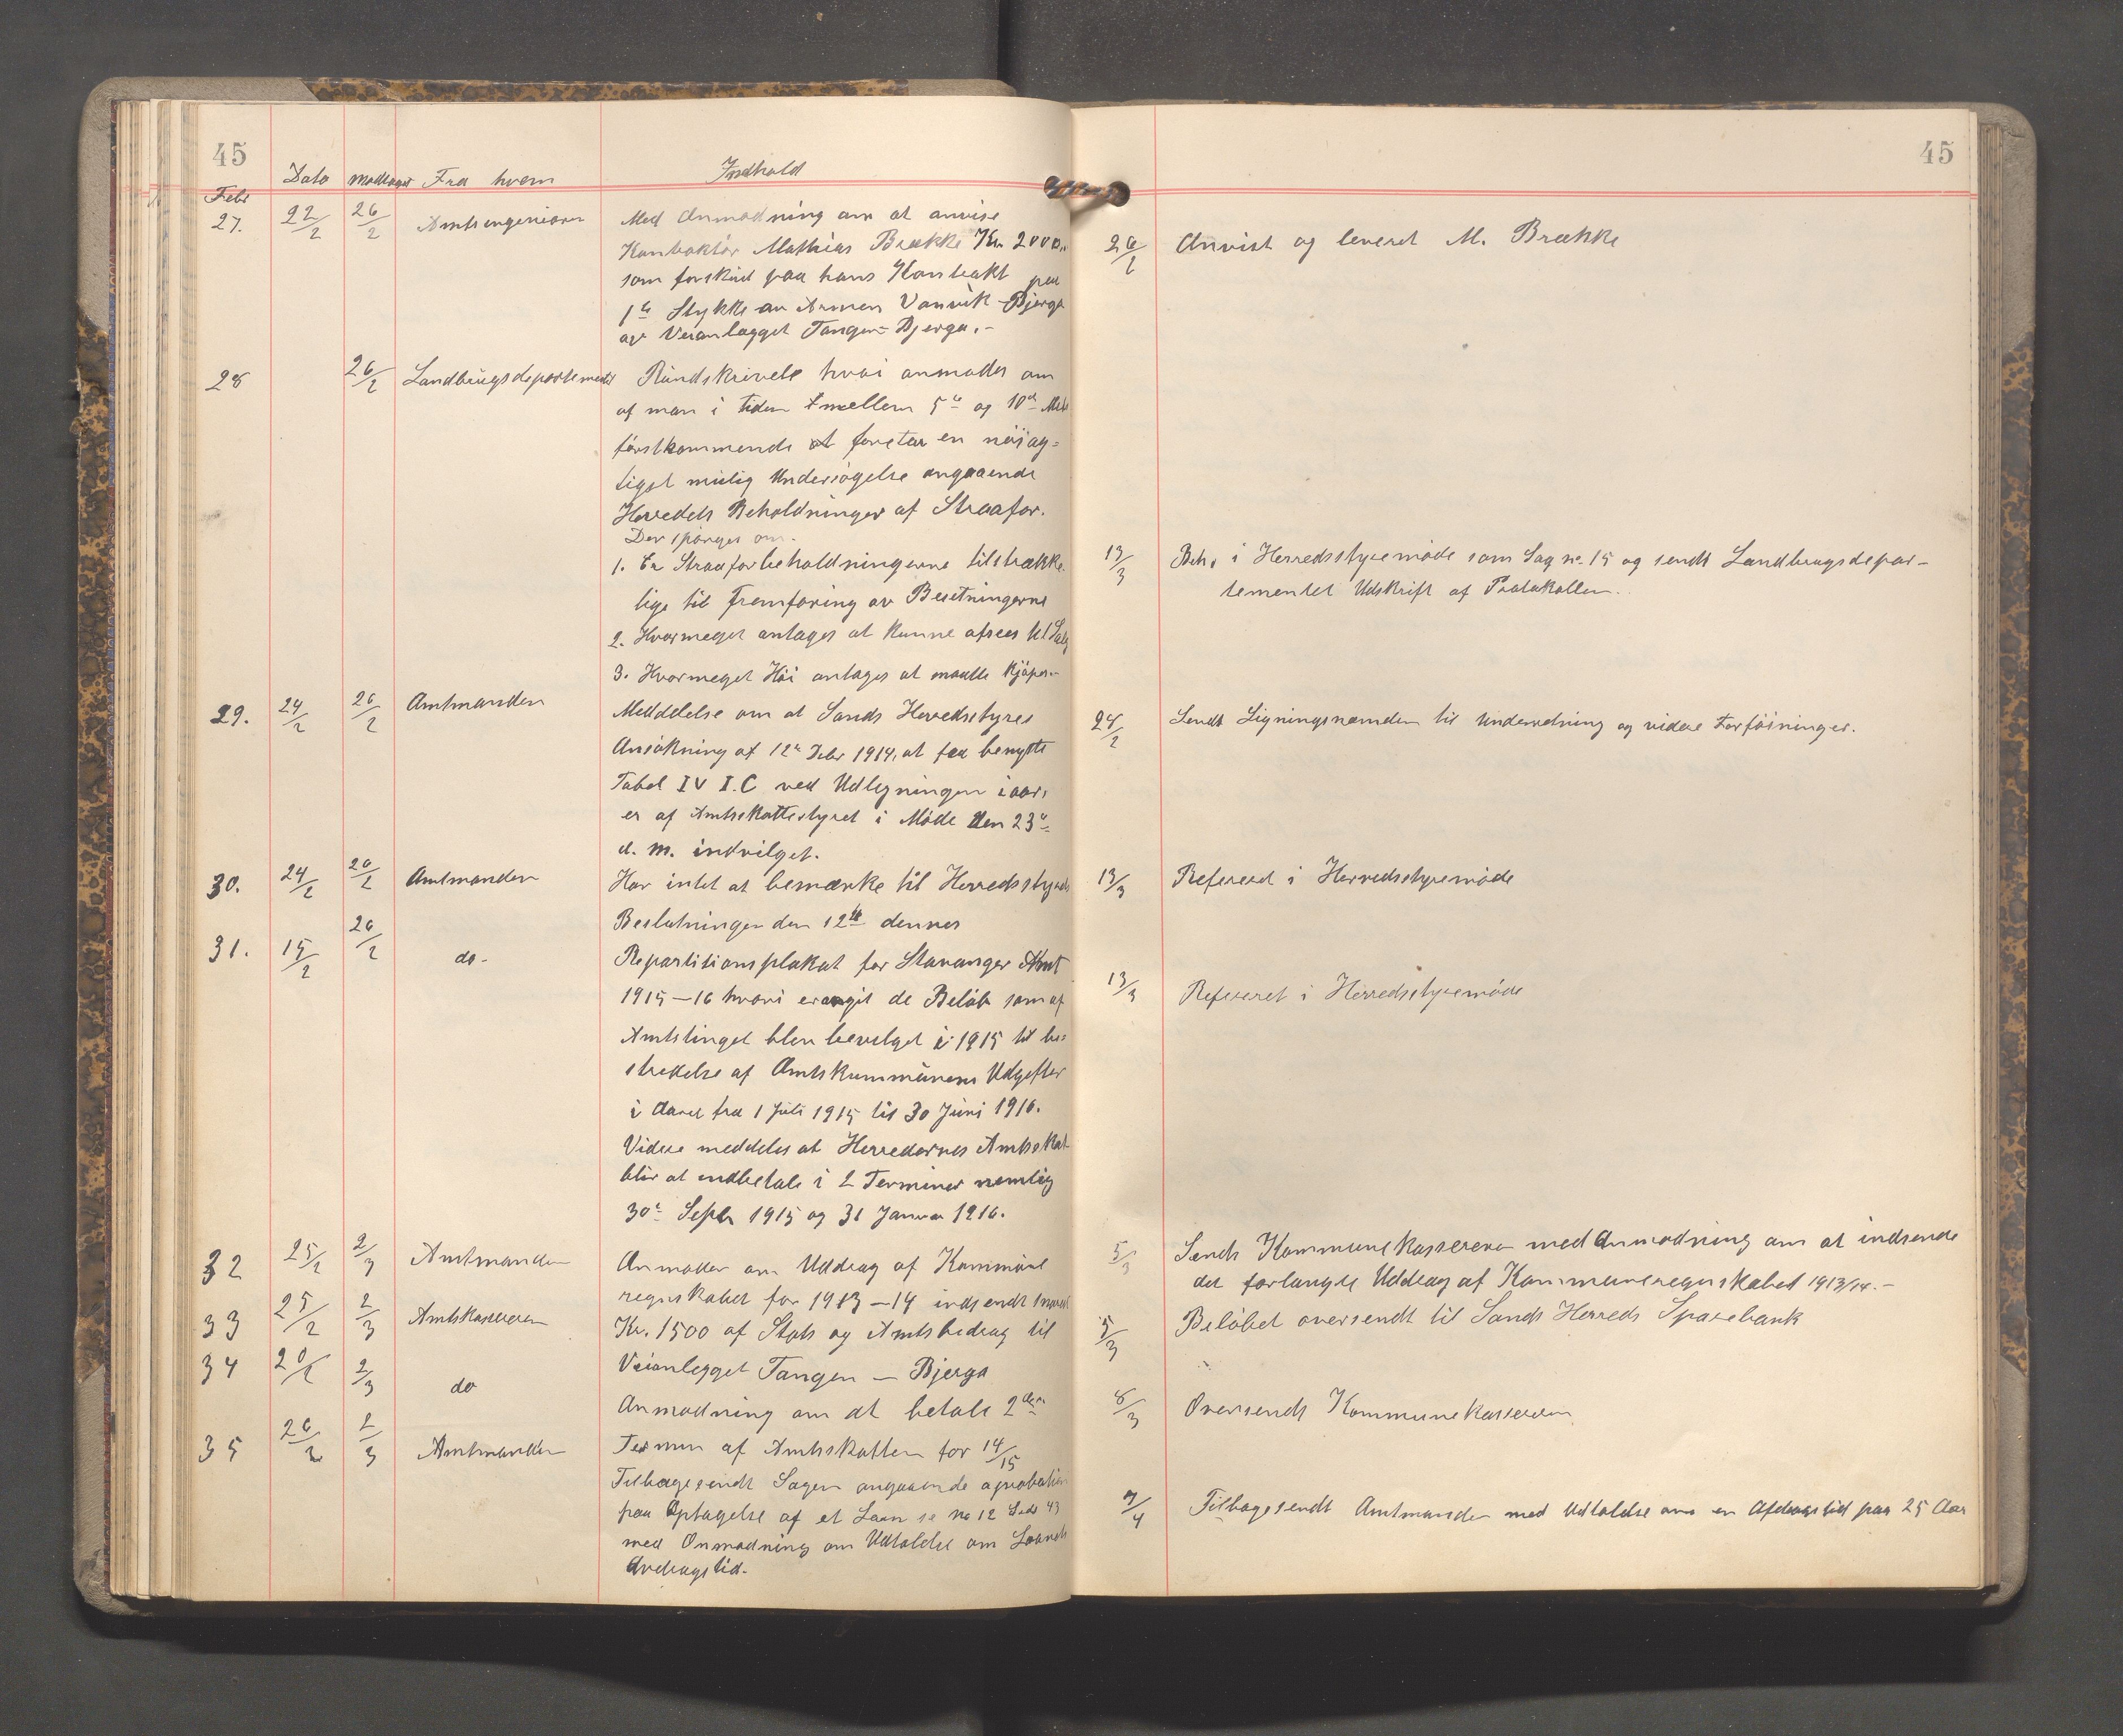 45
Dato Modtaget Fra hvem Indhold
Febr
27. 22/2 26/2 Amtsingeniøren Med Anmodning om at anvise
Kontraktør Mathias Brække Kr 2000,,
som forskud paa hans Kontrakt paa
1te Stykke av Armen Vanvik - Bjerga
av Veianlægget Tangen - Bjerga.-
28 26/2 Landbrugsdepartementet Rundskrivele hvori anmodes om
af man i tiden imellem 5te og 10de
førstkommende at foretar en nöiag-
tigst mulig Undersøgelse angaaende
Herredets Beholdninger af Straafor.
Der spørges om.
1. Er Straaforbeholdningerne tilstrække-
lige til fremforing av Besetningerne
2. Hvormeget antages at kunne afsees til Salg
3. Hvormeget Höi antages at maatte kjöpes.-
29. 24/2 26/2 Amtmanden Meddelelse om at Sands Herredsstyres
Ansökning af 12te Debr 1914, at faa benytte
Tabel IV I.C ved Udligningen iaar,
er af Amtsskattestyret i Möde den 23de
d. m. indvilget.
30. 24/2 26/2 Amtmanden Har intet at bemærke til Herredsstyrets
Beslutninger den 12te dennes
31. 15/2 26/2 do- Repartitionsplakat for Stavanger Amt
1915-16 hvori er angit de Beløb som af
Amtstinget blev bevilget i 1915 til be-
stridelse af Amtskommunens Udgifter
i Aaret fra 1 Juli 1915 til 30 Juni 1916.
Videre meddeles at Herredernes Amtsskat
blir at indbetale i 2 Terminer nemlig
30te Septr 1915 og 31 Januar 1916.
32 25/2 2/3 Amtmanden Anmoder om Uddrag af Kommune
regnskabet for 1913-14 indsendt snarest
33 25/2 2/3 Amtskassereren Kr. 1500 af Stats og Amtsbidrag til
Veianlegget Tangen - Bjerga
34 20/2 2/3 do Anmodning om at betale 2den
Termin af Amtsskatten for 14/15
35 26/2 2/3 Amtmanden Tilbagesendt Sagen angaaende aprobation
paa Optagelse af et Laan se No 12 Side 43
med Anmodning om Udtalelse om Laanets
Avdragstid.
45
26/2 Anvist og leveret M. Brække
13/3 Beh. i Herredsstyremöde som Sag no. 15 og sendt Landbrugsdepar-
tementet Udskrift af Protokollen.
28/2 Sendt Ligningsnæmnden til Underretning og videre Forföininger.
13/3 Refereret i Herredsstyremöde
13/3 Refereret i Herredsstyremöde
5/3 Sendt Kommunekassereren med Anmodning om at indsende
det forlangte Uddrag af Kommuneregnskabet 1913/14.-
5/3 Beløbet oversendt til Sands Herreds Sparebank
8/3 Oversendt Kommunekassereren
7/4 Tilbagesendt Amtmanden med Udtalelse om en Afdragstid paa 25 Aar